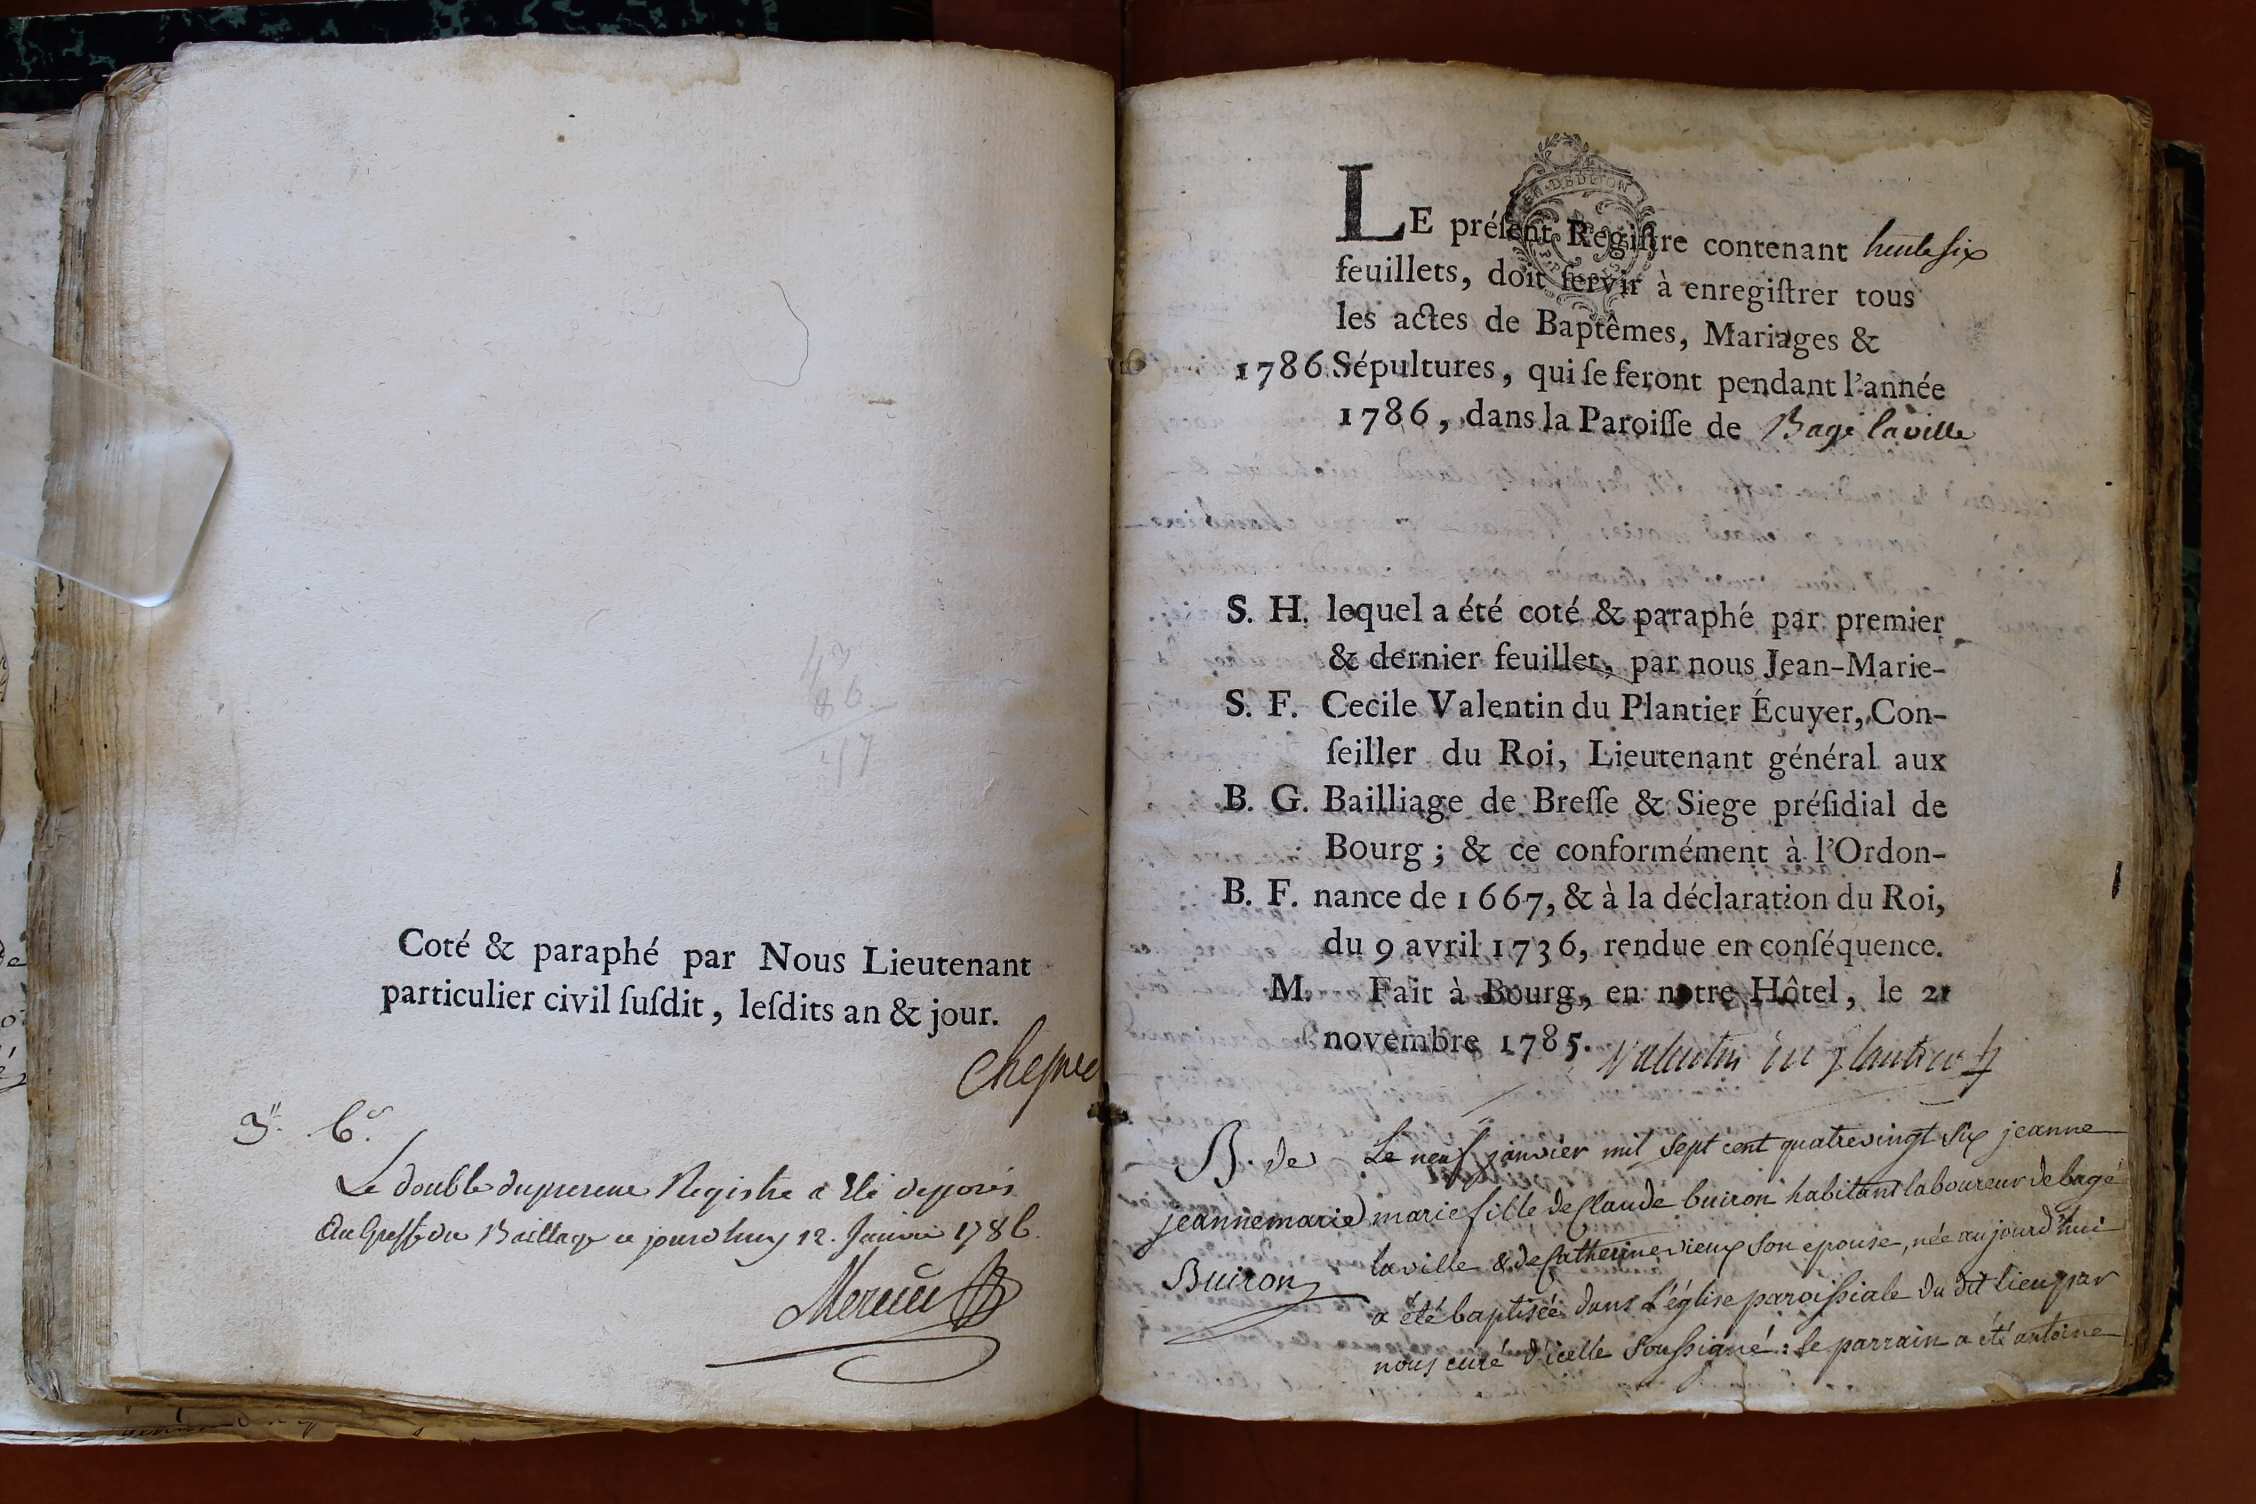 Coté & paraphé par Nous Lieutenant
particulier civil ſuſdit, leſdits an & jour.
3" 6ˢ.
Le double du present Registre a été depposés
Au Greffe du Baillage ce jourdhuy 12. Janvier 1786.
LE préſent Regiſtre contenant trente six
feuillets, doit ſervir à enregiſtrer tous
les actes de Baptêmes, Mariages &
1786. Sépultures, qui ſe feront pendant l'année
1786, dans la Paroiſſe de Bagé la ville
S. H. lequel a été coté & paraphé par premier
& dernier feuillet, par nous Jean-Marie-
S. F. Cecile Valentin du Plantier Écuyer, Con-
ſeiller du Roi, Lieutenant général aux
B. G. Bailliage de Breſſe & Siege préſidial de
Bourg ; & ce conformément à l'Ordon-
B. F. nance de 1667, & à la déclaration du Roi,
du 9 avril 1736, rendue en conſéquence.
M. Fait à Bourg, en notre Hôtel, le 21
novembre 1785. Valentin du plantier
B. de
jeanne marie
Buiron
Le neuf janvier mil sept cent quatrevingt six jeanne
marie fille de Claude buiron habitant laboureur de bagé
la ville & de Catherine vieux son epouse, née aujourd'hui
a été baptisée dans l'église paroissiale du dit lieu par
nous curé d'icelle soussigné : le parrain a été antoine